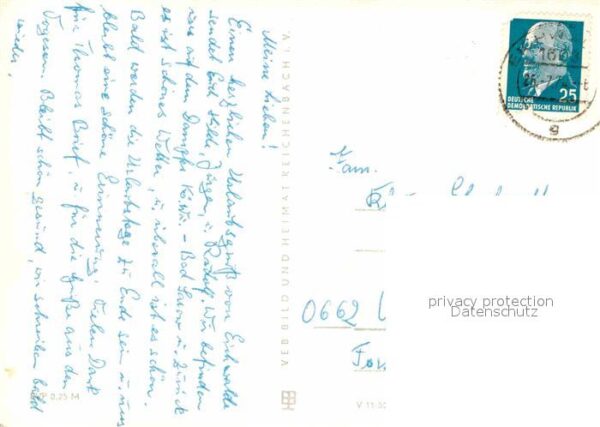 Meine Lieben!
Einen herzlichen Urlaubsgruß von Eichwalde
sendet Euch Hilde, Jürgen, u. Rudolf. Wir befinden
uns auf dem Dampfer K.Wu. - Bad Saarow u. zurück
es ist schönes Wetter, u. überall ist es schön.
Bald werden die Urlaubstage zu Ende sein u. uns
bleibt eine schöne Erinnerung. Vielen Dank
für Thomas Brief, u. für die Grüße aus den
Vogesen. Bleibt schön gesund, wir schreiben bald
wieder,
EVP 0,25 M
VEB BILD UND HEIMAT REICHENBACH I. V.
V 11
25
DEUTSCHE
DEMOKRATISCHE REPUBLIK
Fam.
0662
privacy protection
Datenschutz